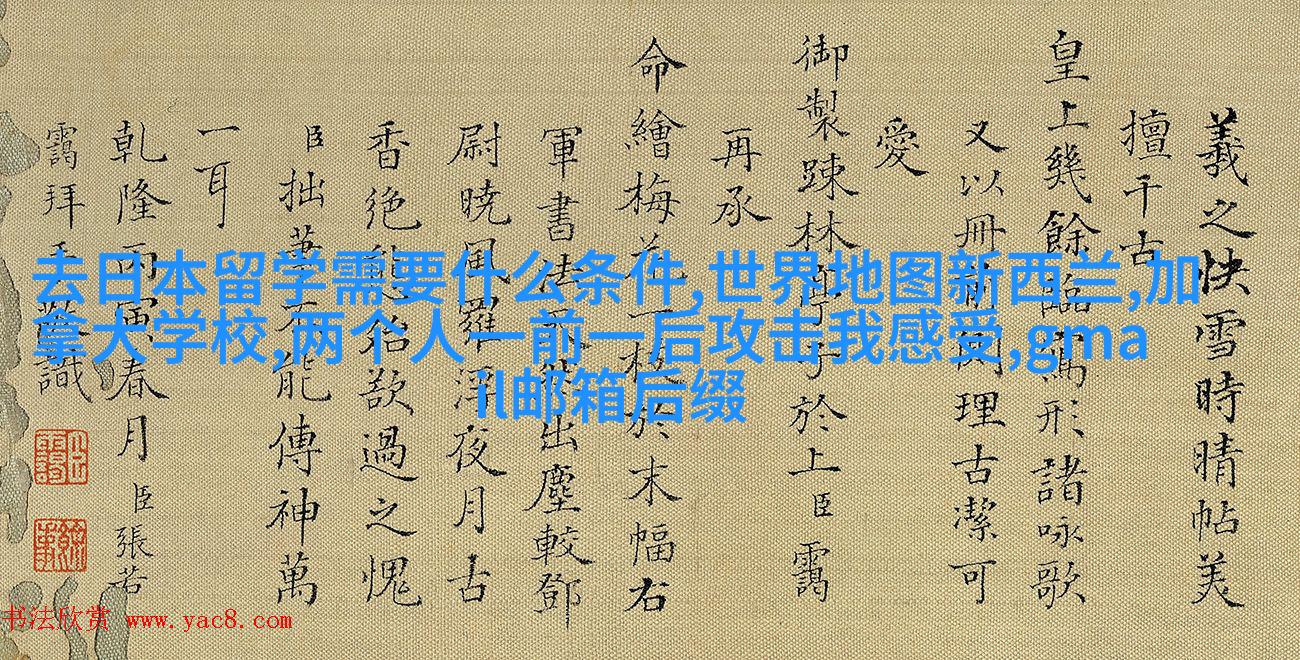 羲之快雪時晴帖美
擅千古
皇上幾餘臨寫形諸咏歌
又以冊前理古潔可
愛
御製疎林亭子於上臣靄
再承
命繪梅花一枝於末幅右
軍書法出塵較鄧
尉曉風羅浮夜月古
香絶態殆欲過之愧
臣拙筆不能傳神萬
一耳
乾隆丙寅春月臣張若
靄拜手敬識
去日本留学需要什么条件,世界地图新西兰,加
拿大学校,两个人一前一后攻击我感受,gma
il邮箱后缀
书法欣赏 www.yac8.com